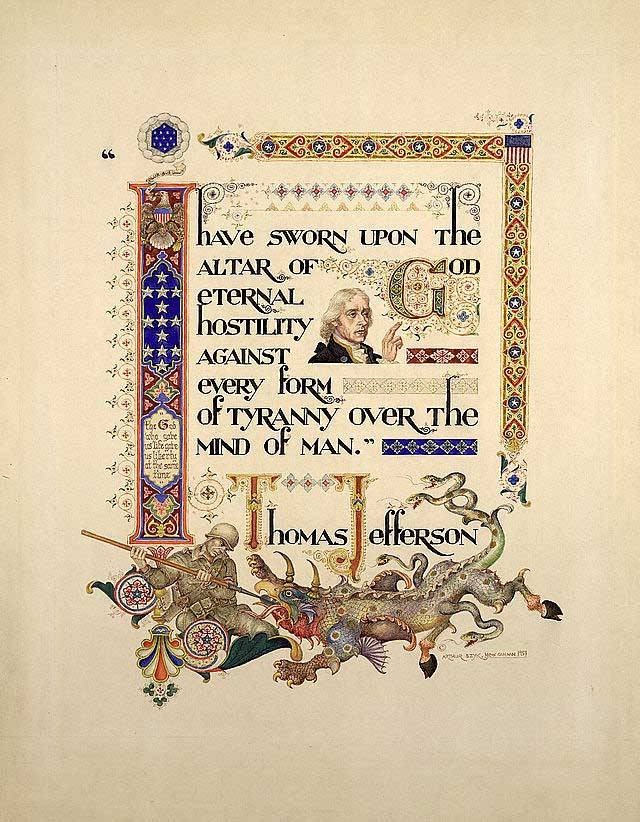 “ I have SWORN UPON the
ALTAR OF GOD
eternal
hostility
AGAINST
every form
of TYRANNY OVER the
MIND OF MAN.”
the God
who gave
us life gave
us liberty
at the same
time
Thomas Jefferson
ARTHUR SZYK, NEW CANAAN 1951